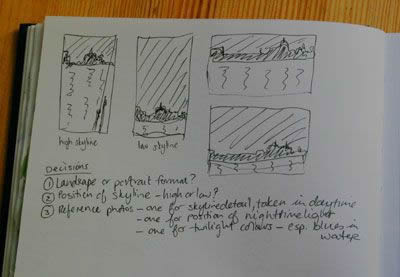 high skyline
low skyline
Decisions
① Landscape or portrait format?
② Position of skyline - high or low?
③ Reference photos - one for skyline detail, taken in daytime
- one for position of nighttime light
- one for twilight colours - esp. blues in
water